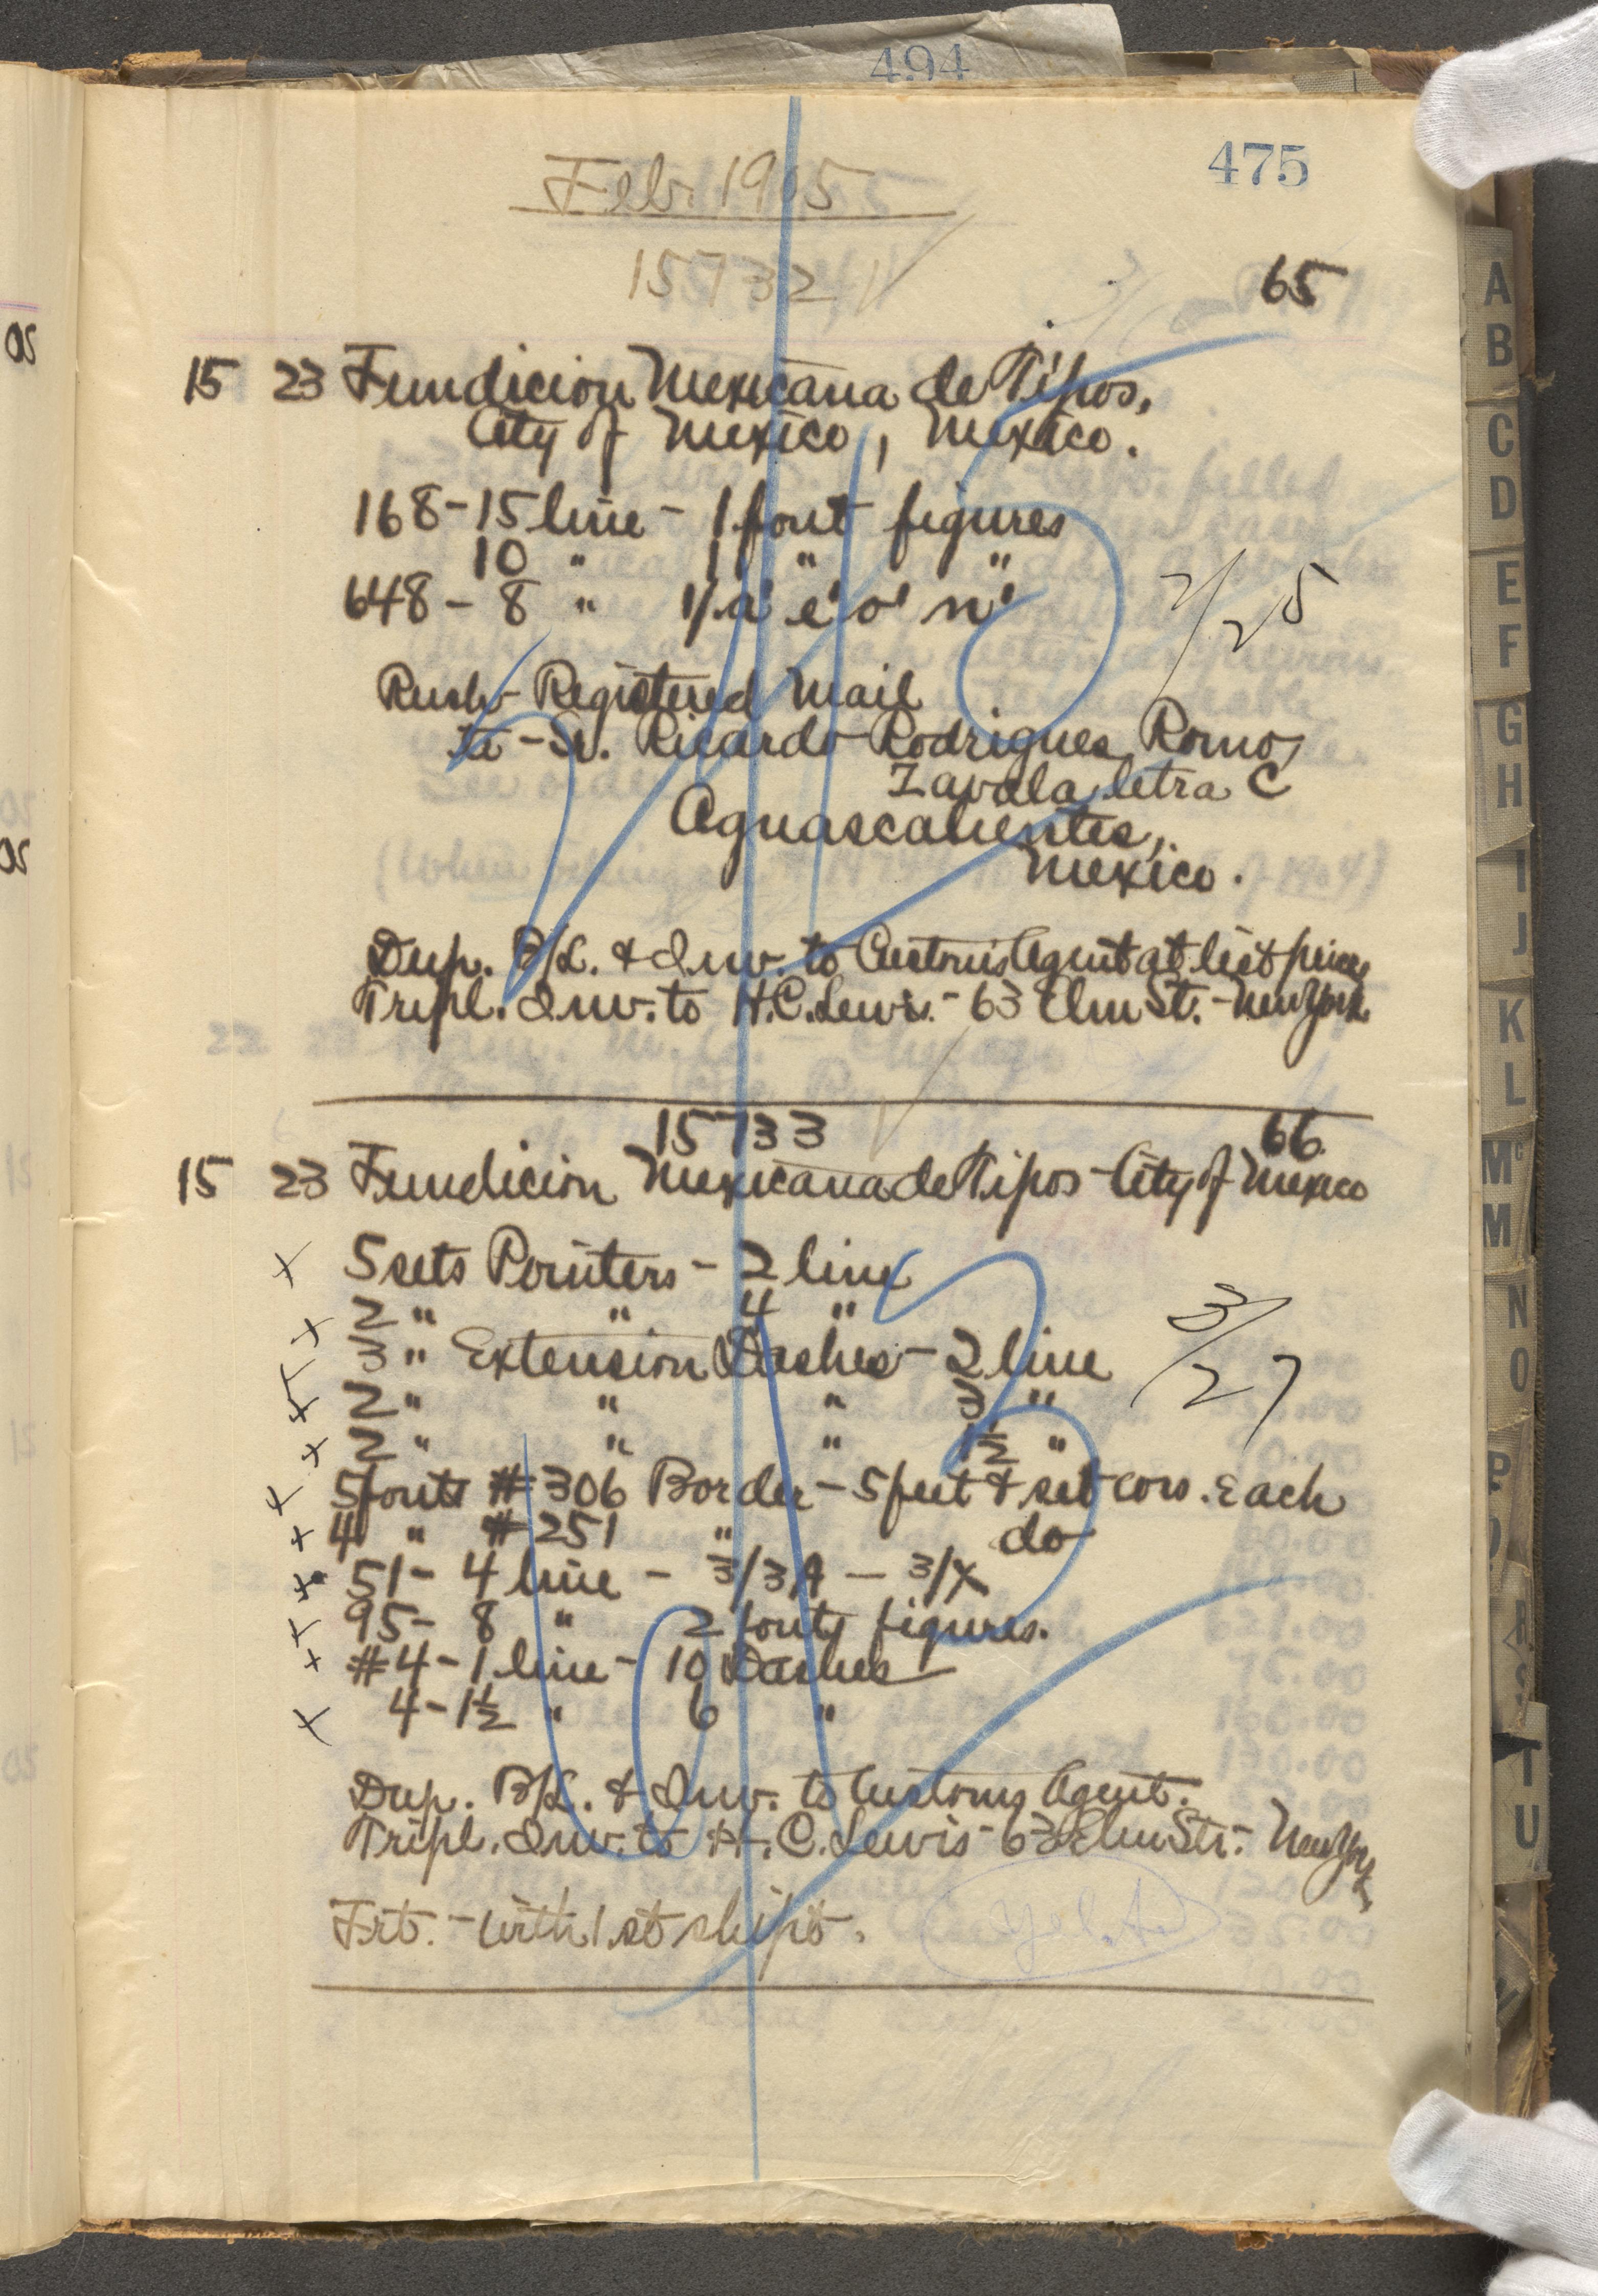 494
475
Feb. 1905
15732
65
15 23 Fundicion Mexicana de Tipos,
City of Mexico, Mexico.
168-15 line - 1 font figures
10 " 1 " "
648-8 " 1/ á é ó ñ
2/25
Rush - Registered Mail
to - Sr. Ricardo Rodrigues Romo,
Zavala letra C
Aguascalientes,
Mexico.
Dup. B/L. & Inv. to Customs Agent at list prices
Tripl. Inv. to H.C. Lewis - 63 Elm St. - New York
15733
66
15 23 Fundicion Mexicana de Tipos - City of Mexico
x 5 sets Pointers - 2 line
x 2 " " 4 "
3 " Extension Dashes - 2 line
3/27
x 2 " " " 3 "
x 2 " " " 1½ "
x 5 fonts #306 Border - 5 feet & set cors. Each
x 4 " #251 " do
x 51 - 4 line - 3/3A - 3/X
x 95 - 8 " 2 fonts figures.
x #4 - 1 line - 10 Dashes
x 4 - 1½ " 6 "
Dup. B/L. & Inv. to Customs Agent.
Tripl. Inv. to H. C. Lewis - 63 Elm Str. - New York
Frt. - with 1st shipt.
A
B
C
D
E
F
G
H
I
J
K
L
Mc
M
N
O
P
R
S
T
U